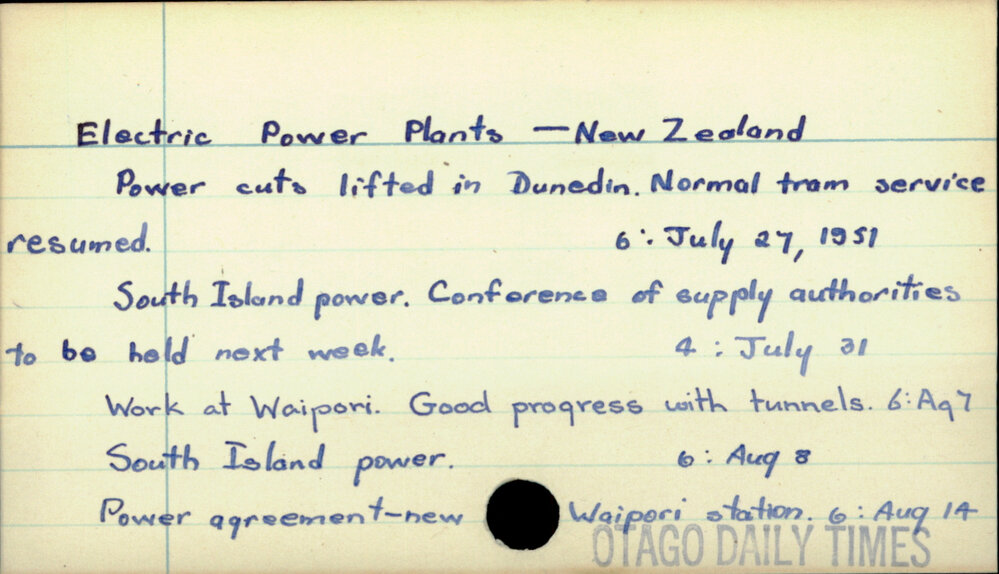 Electric Power Plants — New Zealand
Power cuts lifted in Dunedin. Normal tram service
resumed. 6: July 27, 1951
South Island power. Conference of supply authorities
to be held next week. 4: July 31
Work at Waipori. Good progress with tunnels. 6: Ag 7
South Island power. 6: Aug 8
Power agreement-new Waipori station. 6: Aug 14
OTAGO DAILY TIMES